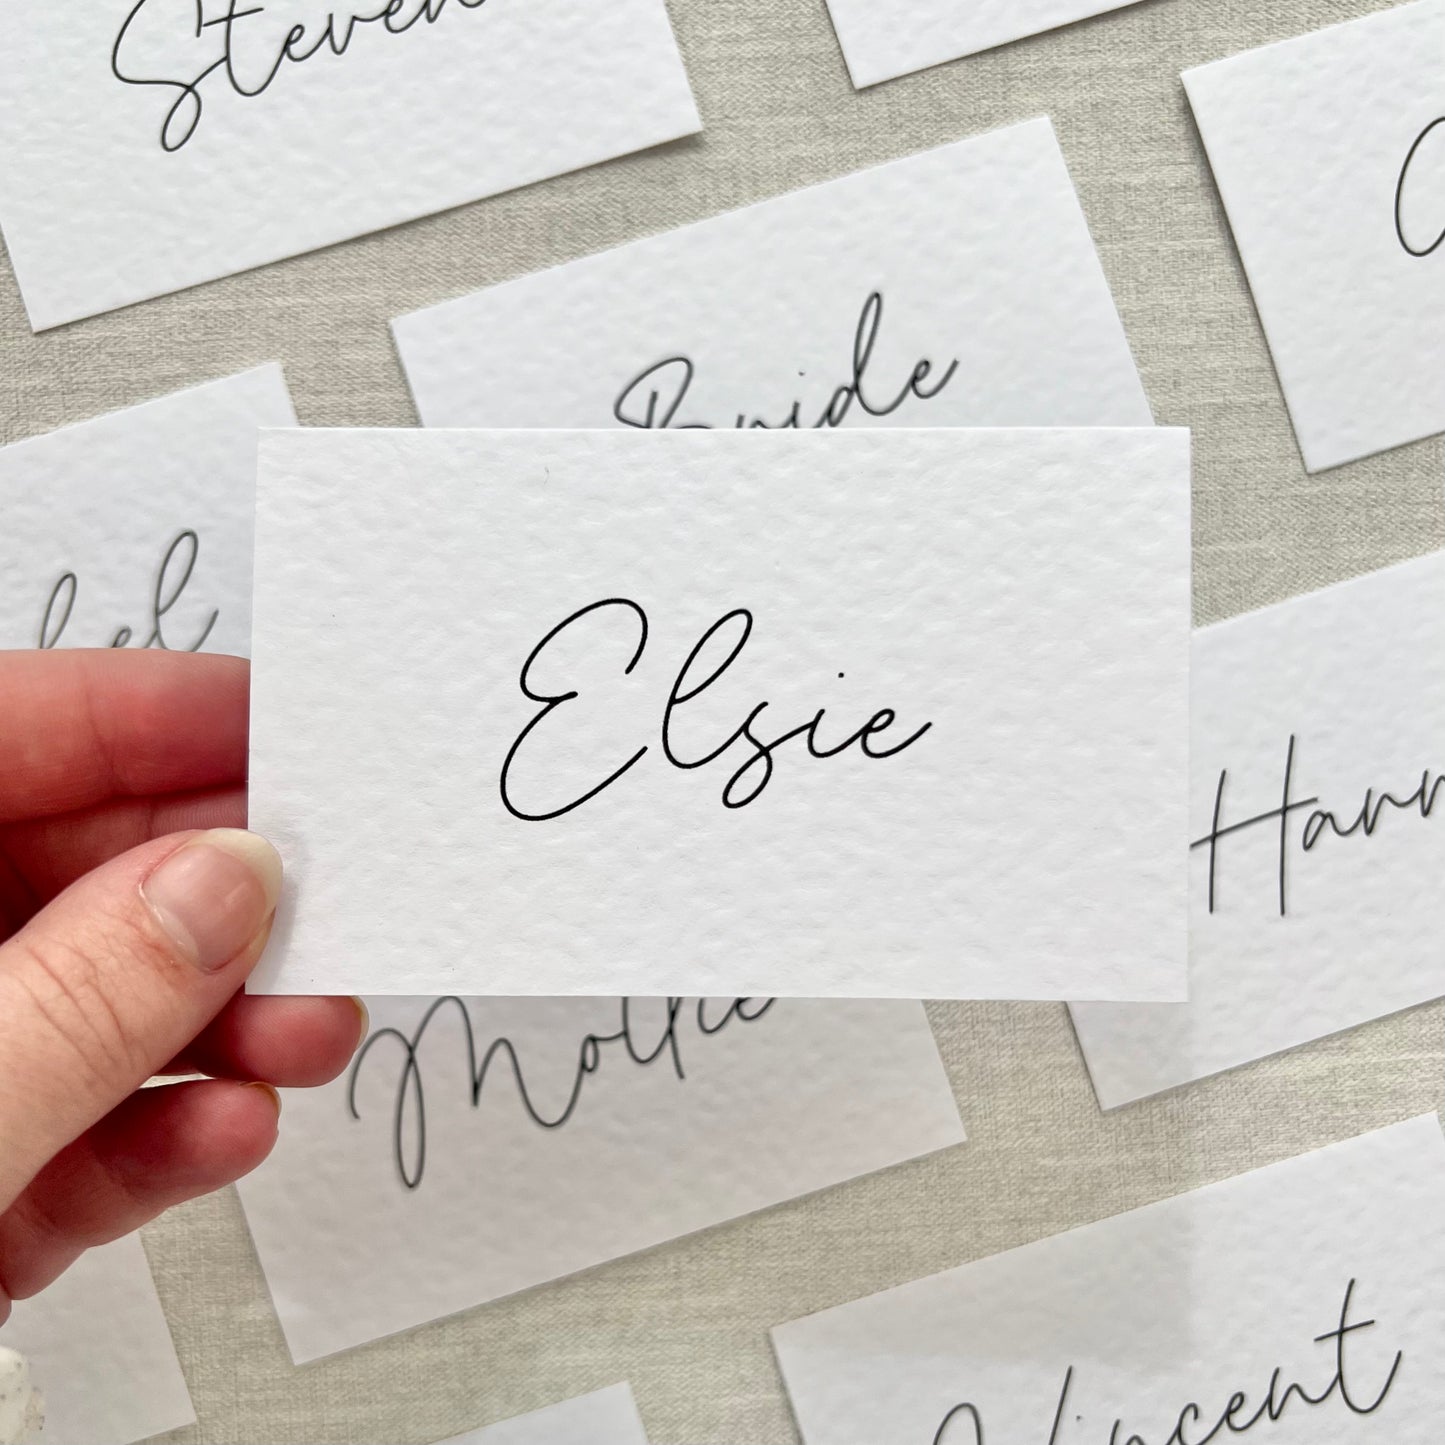 Steven
Bride
Elsie
Mollie
Vincent